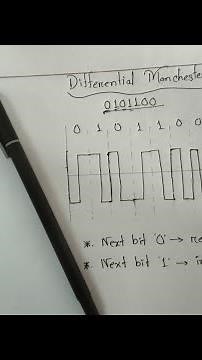 Differential Manchester
0101100
0 1 0 1 1 0 0
*. Next bit '0' →
*. Next bit '1' →